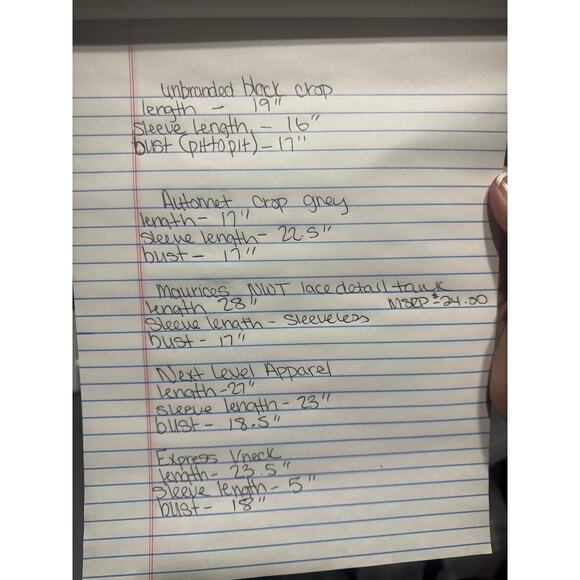 unbranded black crop
length - 19"
sleeve length, - 16"
bust (pit to pit) - 17"
Automet crop grey
length - 17"
sleeve length - 22.5"
bust - 17"
Maurices NWT lace detail tank
length 28" MSRP $24.00
Sleeve length - Sleeveless
bust - 17"
Next Level Apparel
length - 27"
sleeve length - 23"
bust - 18.5"
Express Vneck
length - 23.5"
Sleeve length - 5"
bust - 18"